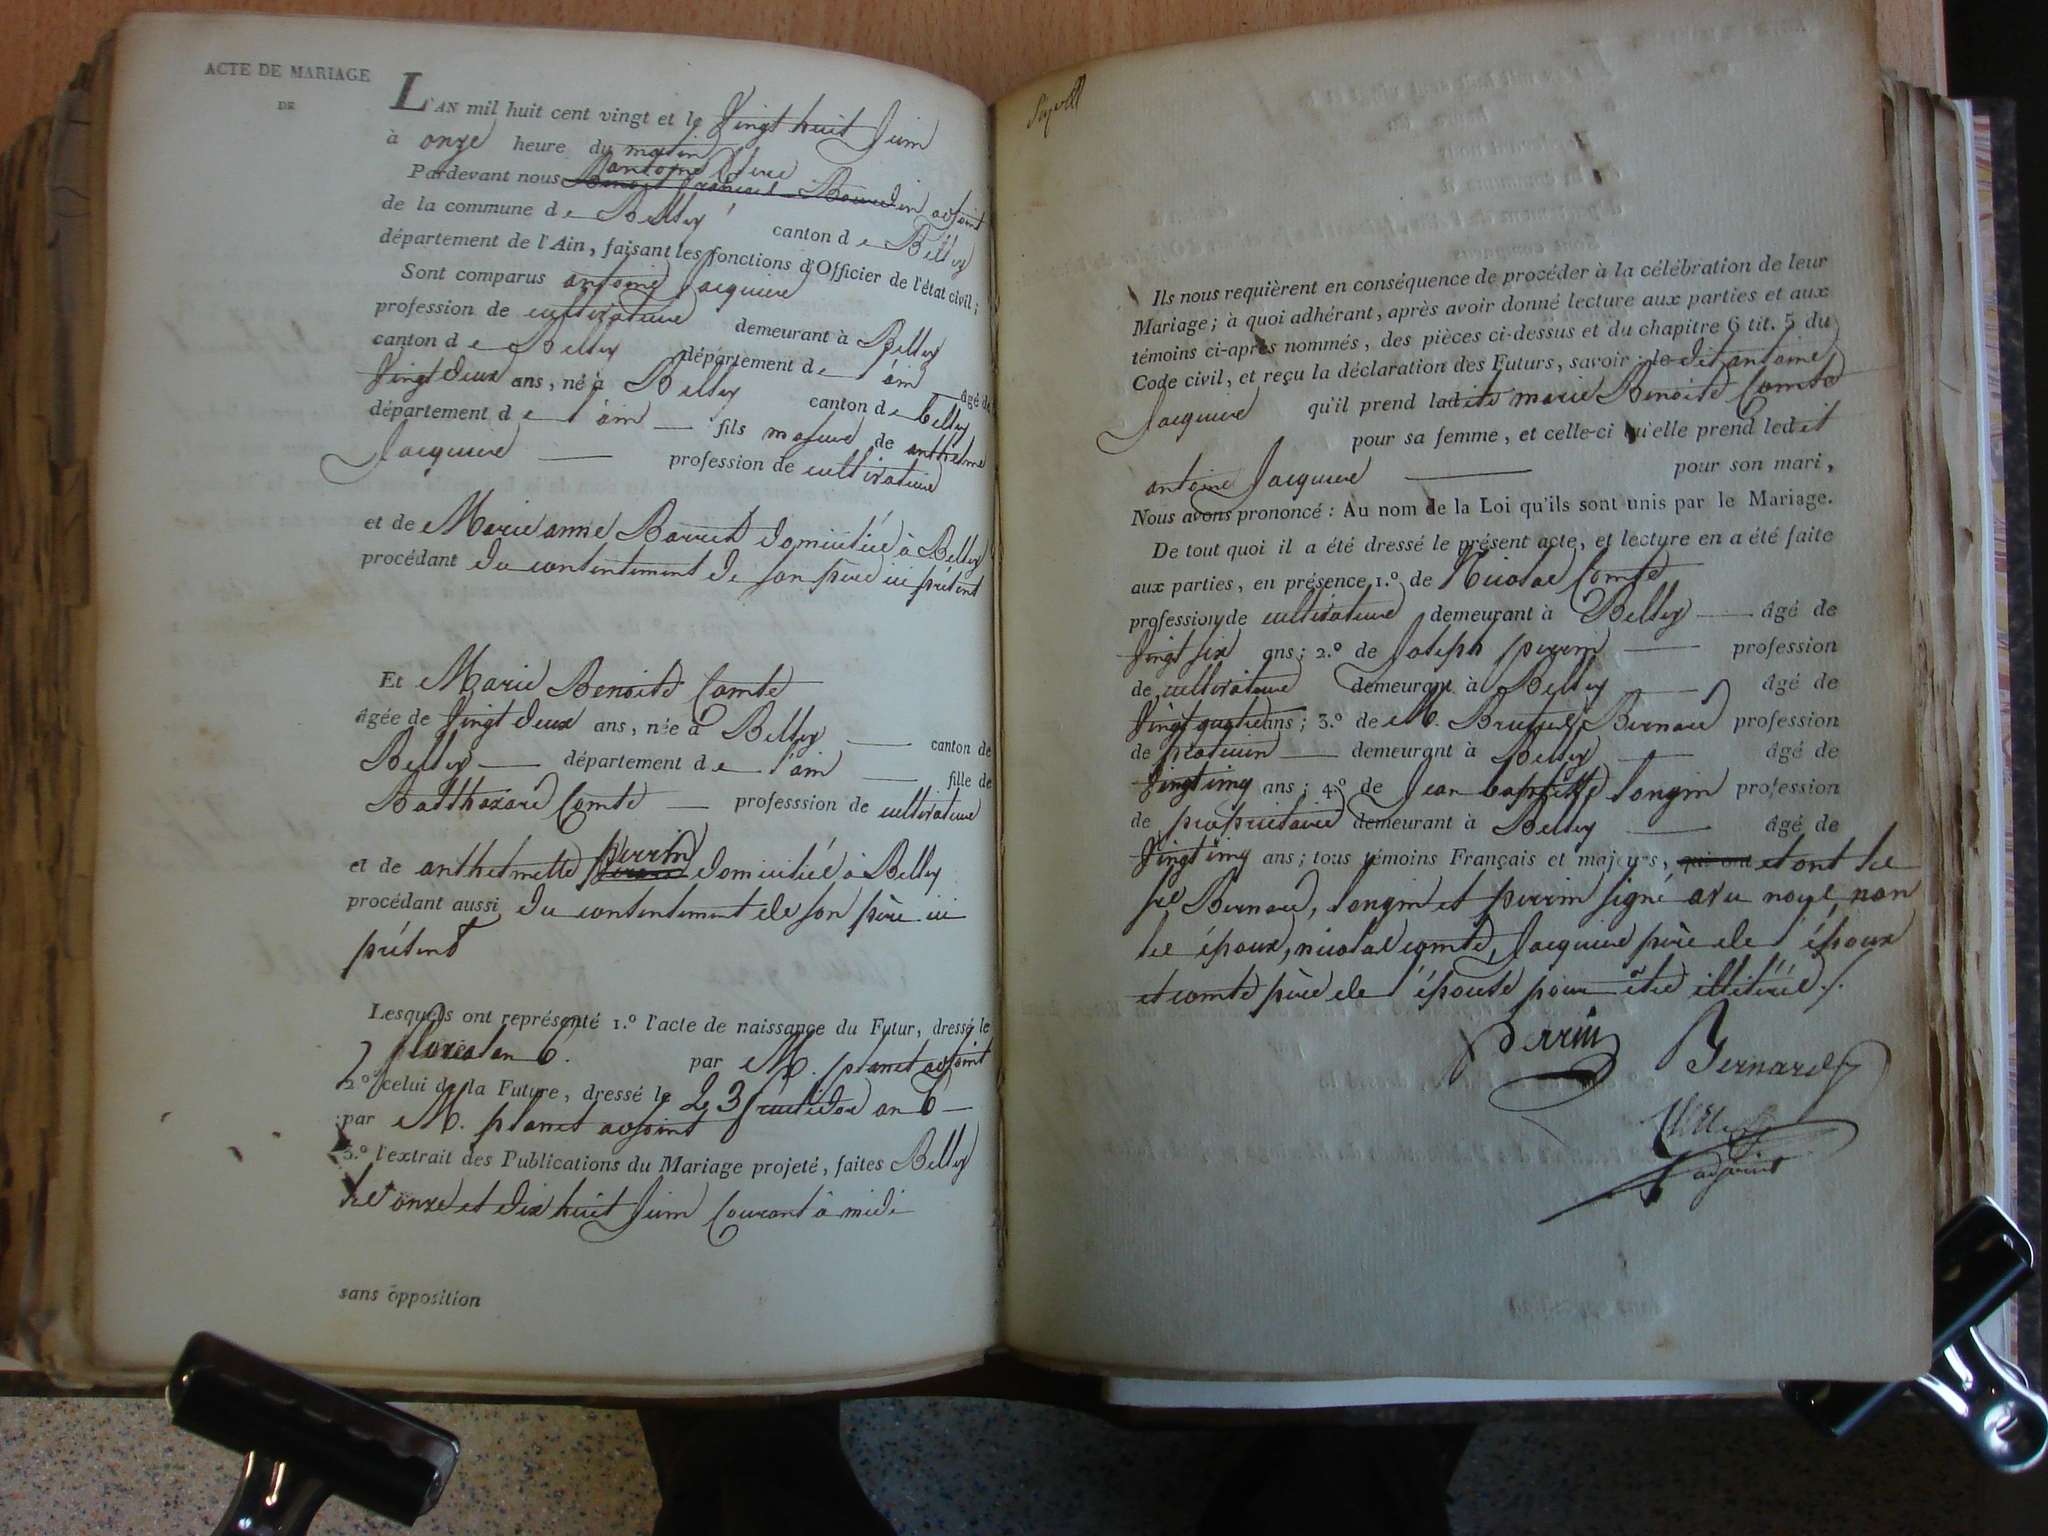 ACTE DE MARIAGE
DE
L'AN mil huit cent vingt et le Vingt huit Juin
à onze heure du matin
antoine
Pardevant nous Benoit françois adjoint
de la commune de Belley canton de Belley
département de l'Ain, faisant les fonctions d'Officier de l'état civil;
Sont comparus antoine Jacquier
profession de cultivateur demeurant à Belley
canton de Belley département de l'ain âgé de
Vingt deux ans, né à Belley canton de belley
département de l'ain fils majeur de anthelme
Jacquier profession de cultivateur
et de Marie anne domiciliée à Belley
procédant du consentement de son père ici présent
Et Marie Benoite Comte
âgée de Vingt deux ans, née à Belley canton de
Belley département de l'ain fille de
Balthazard Comte professsion de cultivateur
perrin
et de anthelmette domiciliée à Belley
procédant aussi du consentement de son père ici
présent
Lesquels ont représenté 1.º l'acte de naissance du Futur, dressé le
7 floréal an 6. par M. planet adjoint
2.º celui de la Future, dressé le 23 fructidor an 6
par M. planet adjoint
3.º l'extrait des Publications du Mariage projeté, faites Belley
les onze et dix huit Juin Courant à midi
sans opposition
Ils nous requièrent en conséquence de procéder à la célébration de leur
Mariage; à quoi adhérant, après avoir donné lecture aux parties et aux
témoins ci-après nommés, des pièces ci-dessus et du chapitre 6 tit. 5 du
Code civil, et reçu la déclaration des Futurs, savoir: le dit antoine
Jacquier qu'il prend ladite marie Benoite Comte
pour sa femme, et celle-ci qu'elle prend ledit
antoine Jacquier pour son mari,
Nous avons prononcé: Au nom de la Loi qu'ils sont unis par le Mariage.
De tout quoi il a été dressé le présent acte, et lecture en a été faite
aux parties, en présence 1.º de Nicolas Comte
profession de cultivateur demeurant à Belley âgé de
Vingt six ans; 2.º de Joseph perrin profession
de cultivateur demeurant à Belley âgé de
Vingt quatre ans; 3.º de M. Bernard profession
de praticien demeurant à Belley âgé de
Vingt cinq ans; 4.º de Jean baptiste longin profession
de propriétaire demeurant à Belley âgé de
Vingt cinq ans; tous témoins Français et majeurs, qui ont et ont les
srs Bernard, longin et perrin signé avec nous, non
les époux, nicolas comte, Jacquier père de l'époux
et comte père de l'épouse pour être illitérés ./.
Perrin Bernard
adjoint